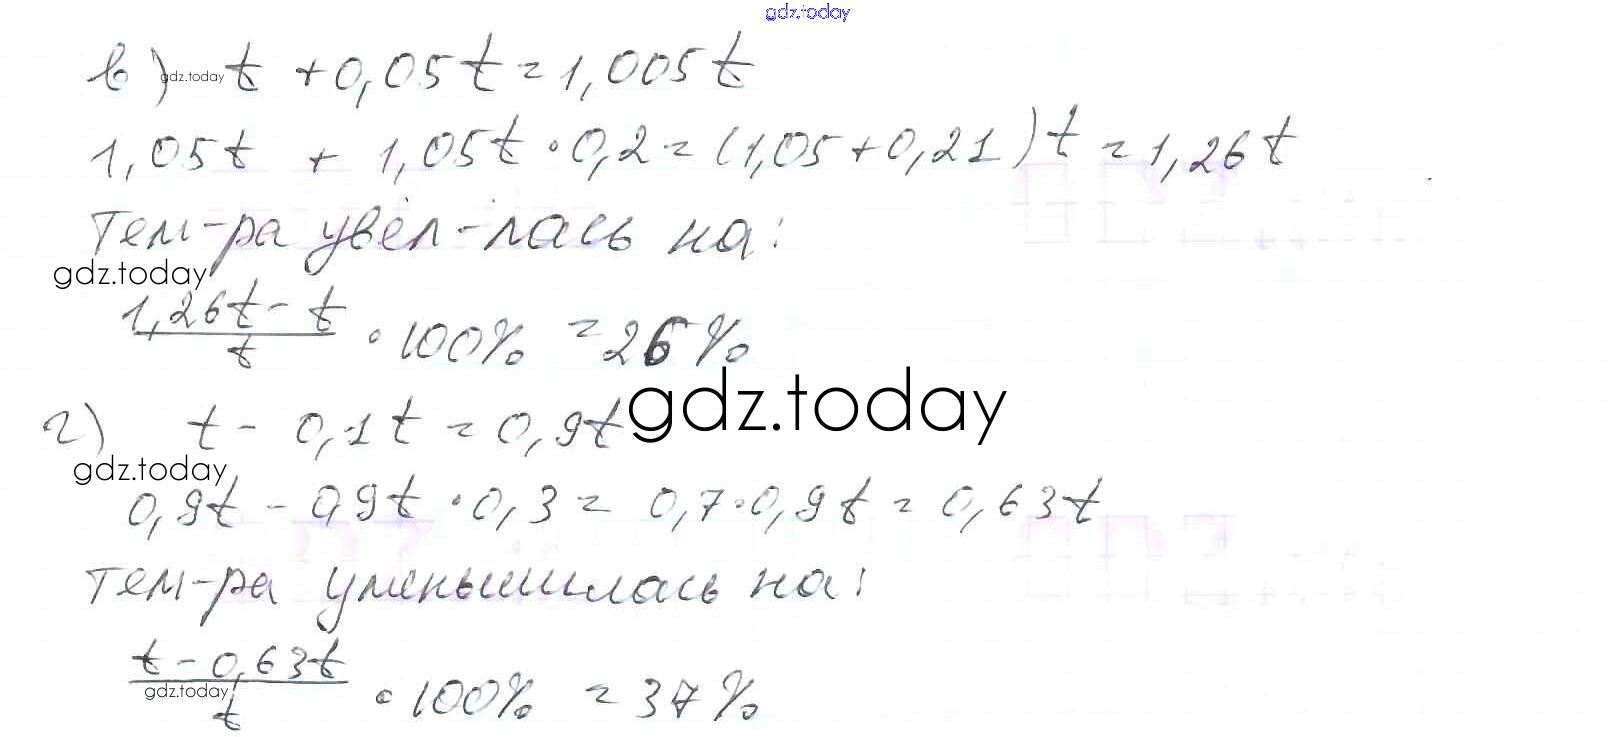 gdz.today
в) gdz.today t + 0,05t = 1,005t
1,05t + 1,05t · 0,2 = (1,05 + 0,21)t = 1,26t
Тем-ра увел-лась на:
gdz.today
1,26t - t
/ t · 100% = 26%
gdz.today
г) t - 0,1t = 0,9t
gdz.today
0,9t - 0,9t · 0,3 = 0,7 · 0,9t = 0,63t
Тем-ра уменьшилась на:
t - 0,63t
gdz.today
/ t · 100% = 37%